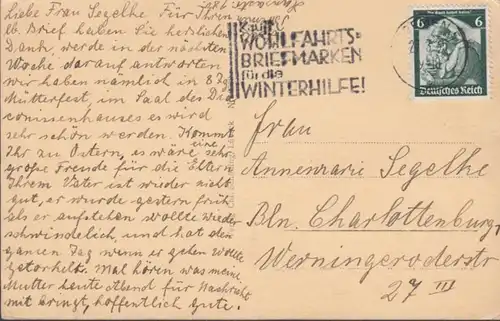 Liebe Frau Segelhe Für Ihren
lb. Brief haben Sie herzlichen
Dank, werde in der nächsten
Woche darauf antworten
wir haben nämlich in 8 Tg
Mütterfest, im Saal des Dia
conissenhauses es wird
sehr schön werden. Kommt
Ihr zu Ostern, es wäre eine sehr
große Freude für die Eltern
Ihrem Vater ist wieder nicht
gut, er wurde gestern früh
als er aufstehen wollte wieder
schwindelich, und hat den
ganzen Tag wenn er gehen wollte
getorkelt. Mal hören was meine
Mutter heute Abend für Nachricht
mit bringt, hoffentlich gute.
Kauft
WOHLFAHRTS-
BRIEFMARKEN
für die
WINTERHILFE!
6 6
Deutsches Reich
Frau
Annemarie Segelhe
Bln. Charlottenburg 1
Werningeroderstr
27 III